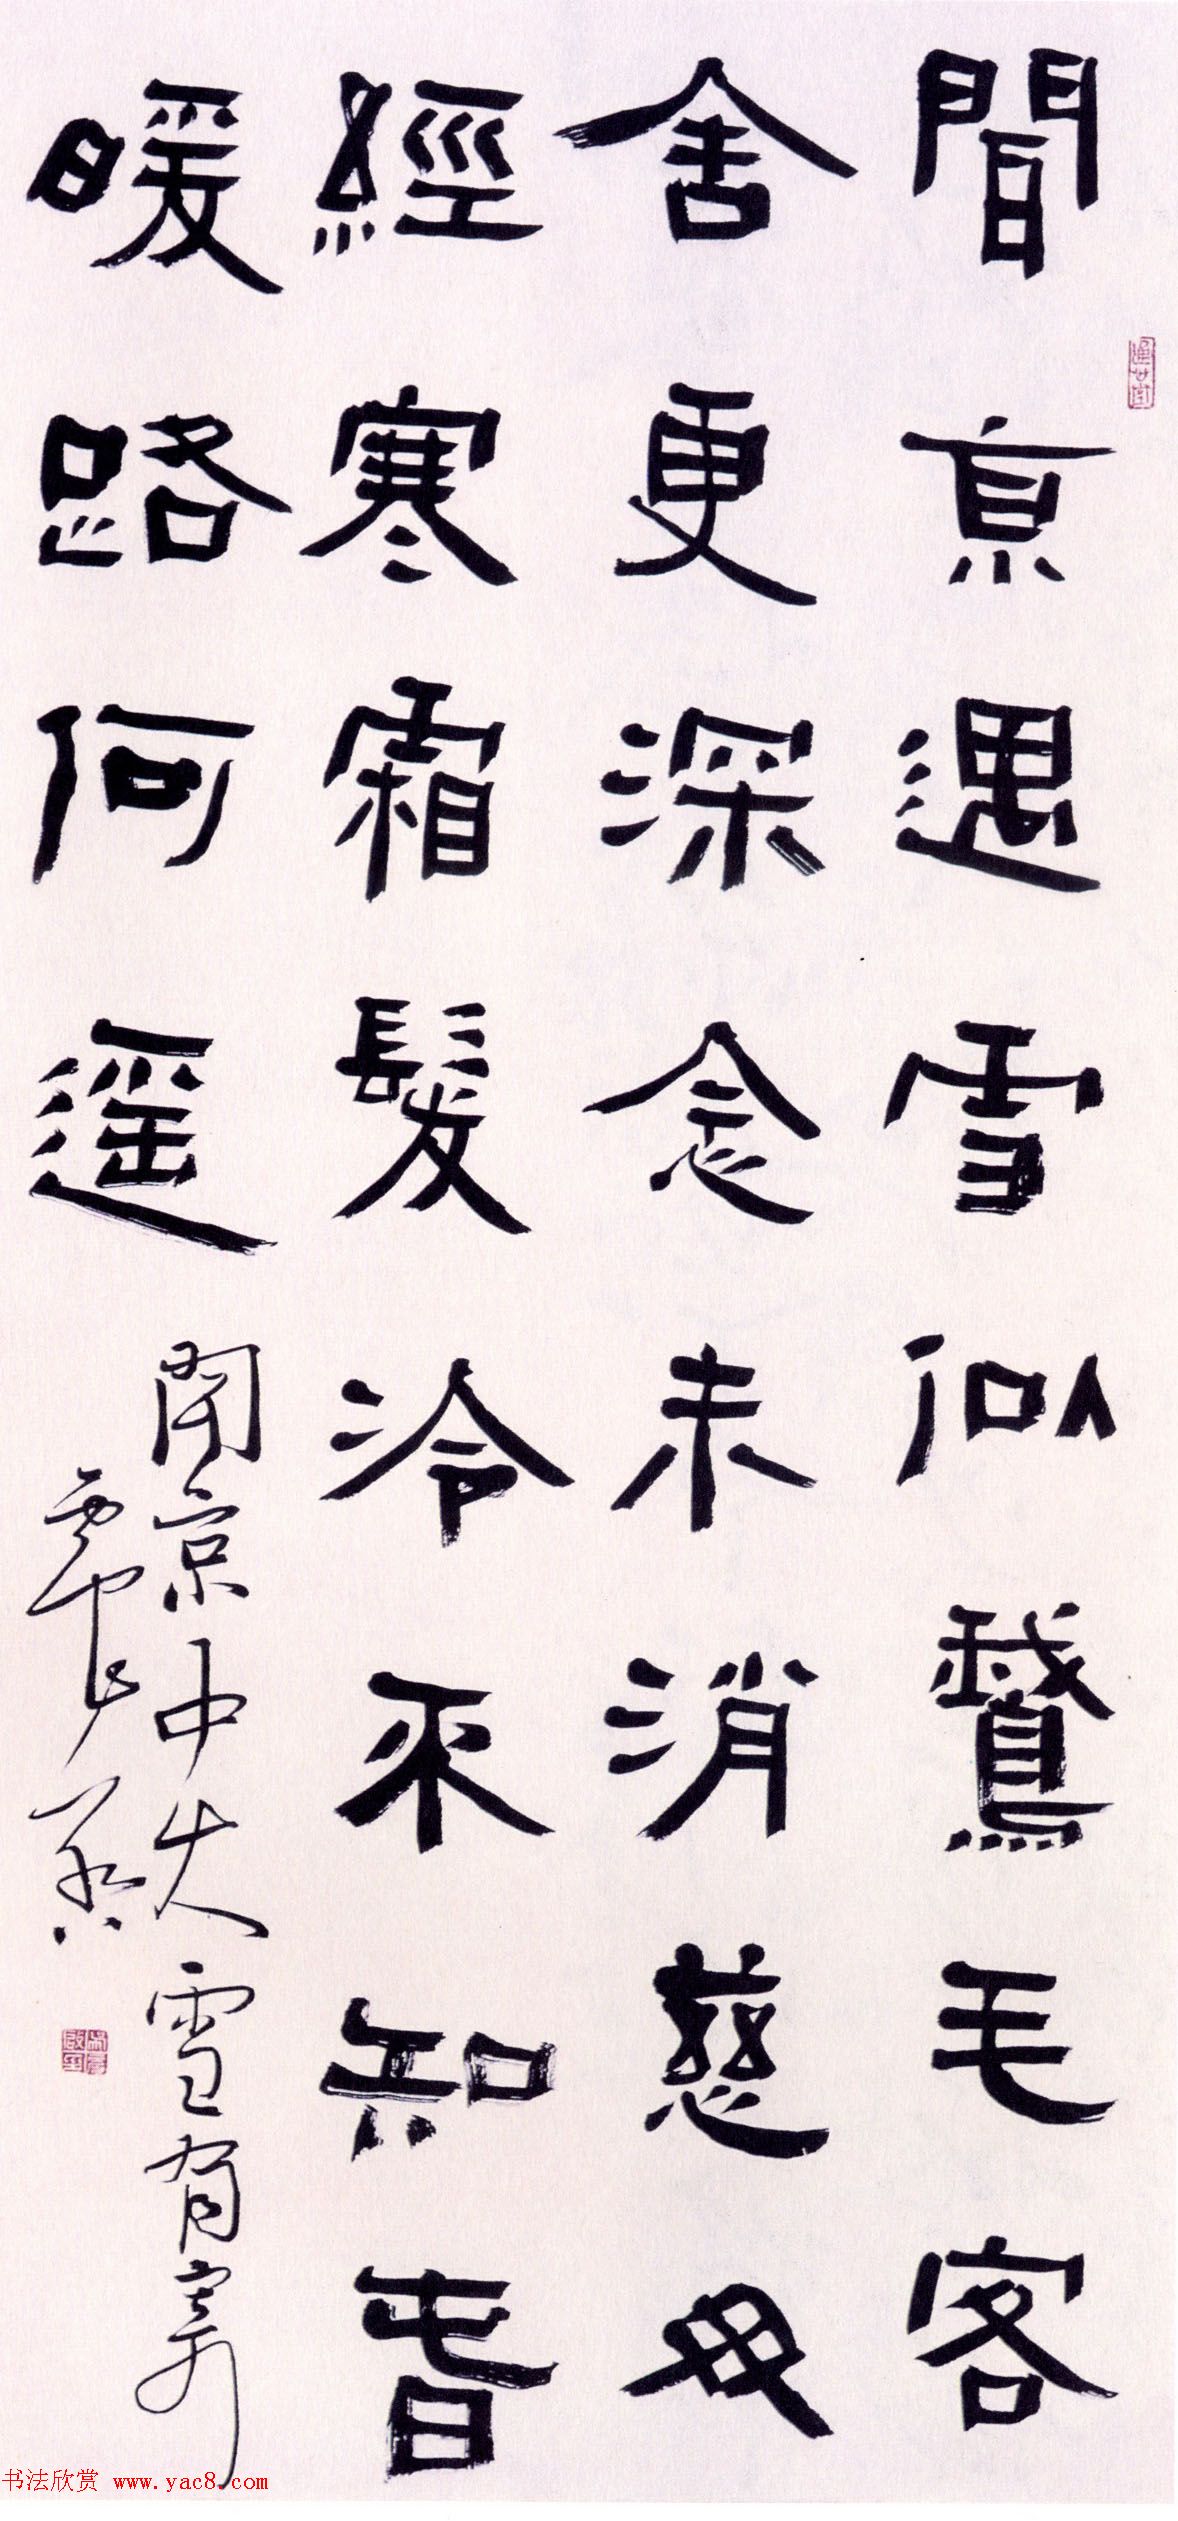 聞京遇雪似鵝毛客
舍更深念未消慈母
經寒霜髮冷不知春
暖路何遥
聞京中大雪有寄
书法欣赏 www.yac8.com